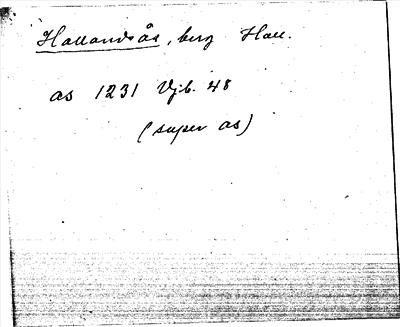 Hallandsås, berg Hall.
as 1231 Vjb. 48
(super as)